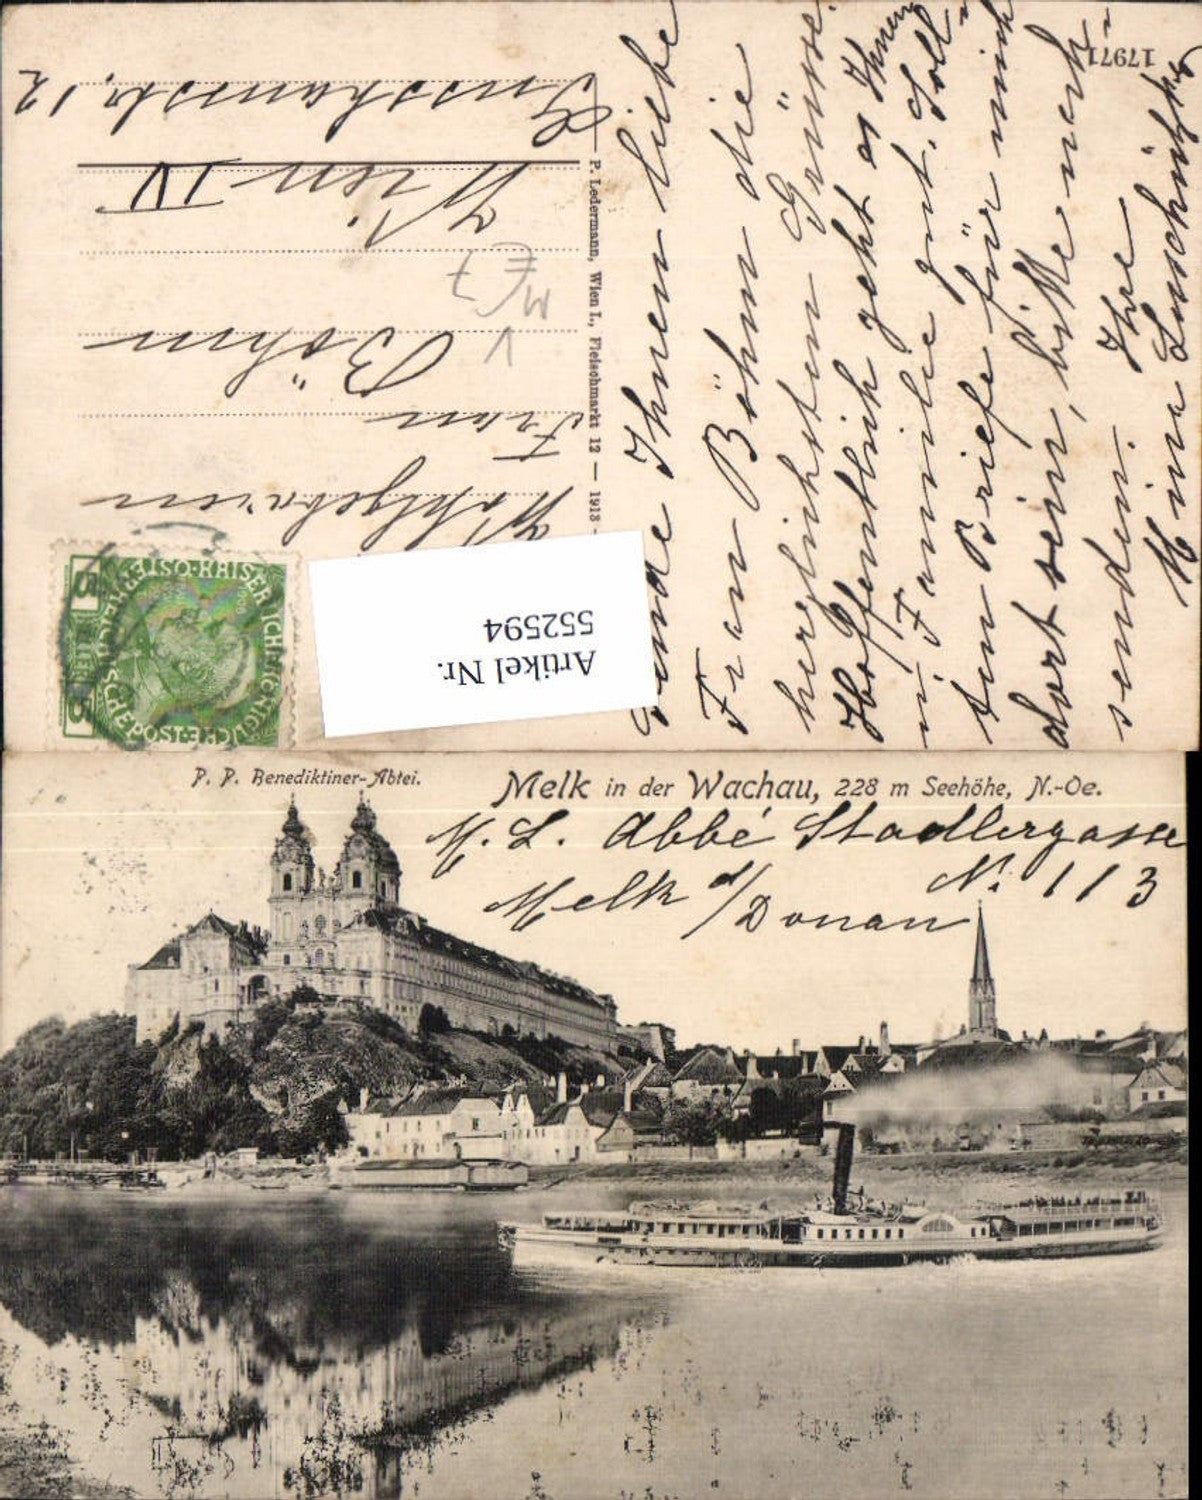 17971
Sende Ihnen liebe
Frau Böhm die
herzlichsten Grüsse.
Hoffentlich geht es Ihnen
u. Familie gut. Soll
ein Briefe für mich
dort sein, bitte nach
senden.
Ihre
Mina
P. Ledermann, Wien I., Fleischmarkt 12 — 1913
Wohlgeboren
Frau
Böhm
Wien IV
12
V
M
E 7
5 HELLER 5
KAISERLICHE KÖNIGLICHE
ÖSTERREICHISCHE POST
Artikel Nr.
552594
P. P. Benediktiner-Abtei.
Melk in der Wachau, 228 m Seehöhe, N.-Oe.
M. L. Abbé Stadlergasse
Nr. 113
Melk a/Donau